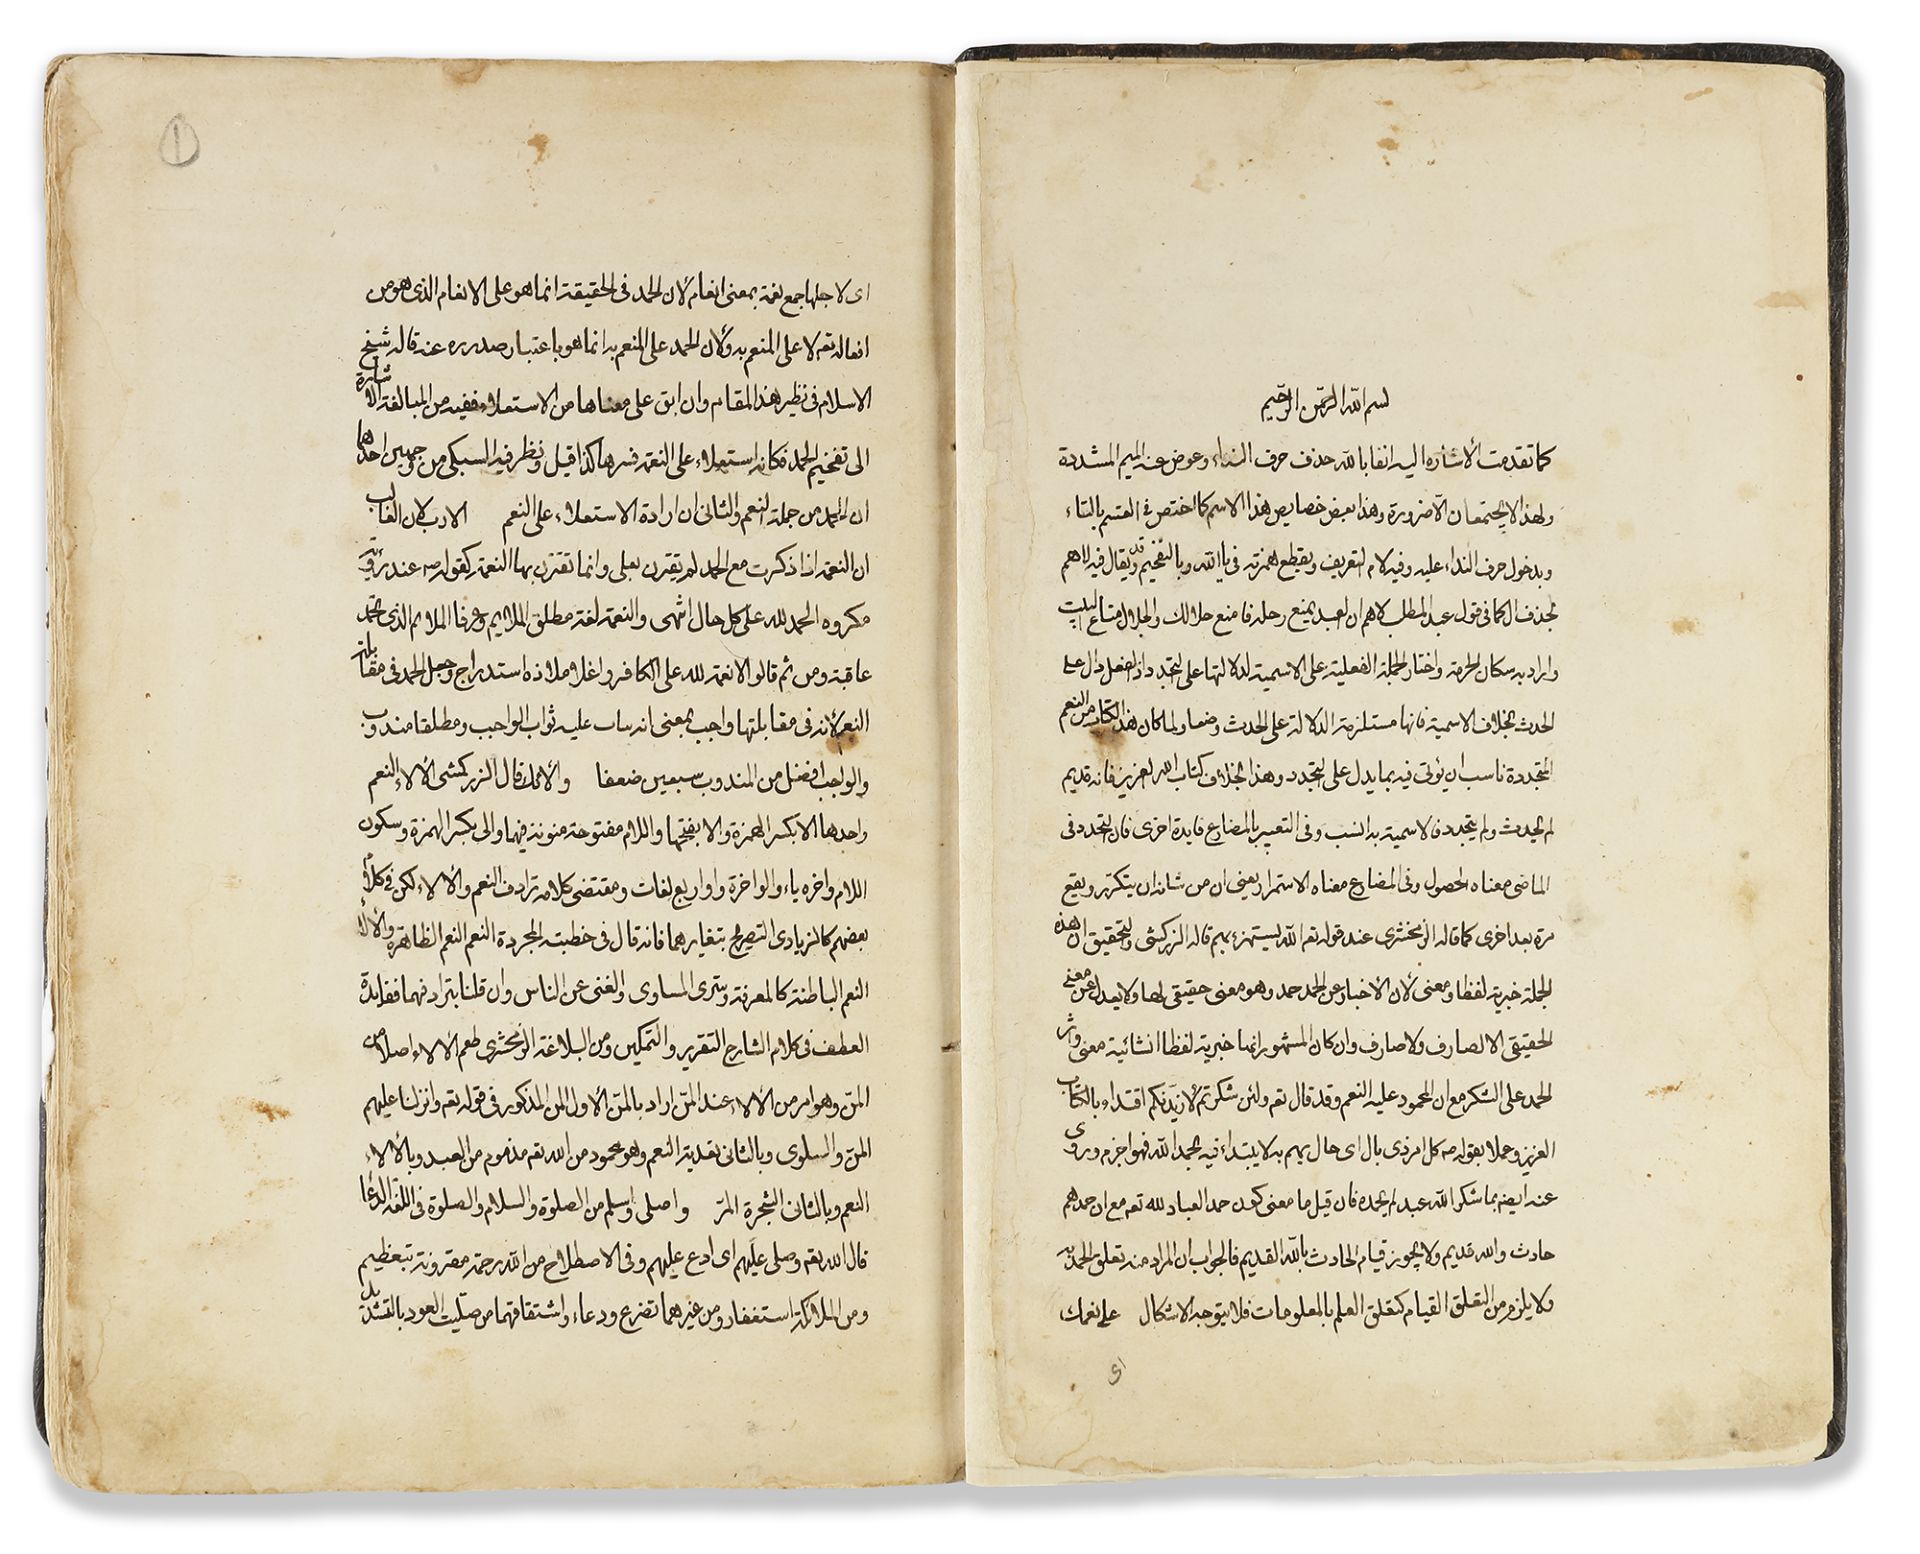 بسم الله الرحمن الرحيم
كما تقدمت الاشاره اليه انفا بالله حذف حرف النداء وعوض عنه الميم المشددة
ولهذا لا يجتمعان الا ضرورة وهذا بعض خصايص هذا الاسم كما اختص فى القسم بالتاء
وبدخول حرف النداء عليه وفيه لام التعريف وبقطع همزته فى يا الله وبالتفخيم وقد يقال فيه لاهم
بحذف ال كما فى قول عبد المطلب لاهم ان العبد يمنع رحله فامنع حلالك والحلال متاع البيت
واراد به سكان الحرم واختار الجملة الفعلية على الاسمية لدلالتها على التجدد اذ الفعل دال على
الحدث بخلاف الاسمية فانها مستلزمة الدلالة على الحدث وضعا ولما كان هذا الكتاب من النعم
المتجددة ناسب ان يؤتى فيه بما يدل على التجدد وهذا بخلاف كتاب الله العزيز فانه قديم
لم يحدث ولم يتجدد فالاسمية به انسب وفى التعبير بالمضارع فايدة اخرى فان التجدد فى
الماضى معناه الحصول وفى المضارع معناه الاستمرار يعنى ان من شانه ان يتكرر ويقع
مرة بعد اخرى كما قاله الزمخشرى عند قوله تعه الله يستهزء بهم قاله الزركشى والتحقيق ان هذه
الجملة خبرية لفظا ومعنى لان الاخبار عن الحمد حمد وهو معنى حقيقى لها ولا يعدل عن معنى
الحقيقى الا لصارف ولا صارف وان كان المشهور انها خبرية لفظا انشائية معنى واثر
الحمد على الشكر مع ان المحمود عليه النعم وقد قال تعه ولئن شكرتم لازيدنكم اقتداء بالكتاب
العزيز وعملا بقوله صه كل امر ذى بال اى حال يهم به لا يبتداء فيه بحمد الله فهو اجزم وروى
عنه ايضه بما شكر الله عبد لم يحمده فان قيل ما معنى كون حمد العباد لله تعه مع ان حمدهم
حادث والله قديم ولا يجوز قيام الحادث بالله القديم فالجواب ان المراد منه تعلق الحمد به
ولا يلزم من التعلق القيام كتعلق العلم بالمعلومات فلا يتوجه الاشكال على نعمك
اى
١
اى لاجلها جمع نعمة بمعنى انعام لان الحمد فى الحقيقة انما هو على الانعام الذى هو من
افعاله تعه لا على المنعم به ولان الحمد على المنعم به انما هو باعتبار صدوره عنه قاله شيخ
الاسلام فى نظير هذا المقام وان ابق على معناها من الاستعلاء ففيه من المبالغة الاشارة
الى تفخيم الحمد فكانه استعلاء على النعمة فسرها كذا قيل ونظر فيه السبكى من وجهين احدهما
ان الحمد من جملة النعم والثانى ان ارادة الاستعلاء على النعم الادب لان الغالب
ان النعمة اذا ذكرت مع الحمد لم يقترن بعلى وانما تقترن بها النعمة كقوله صه عند رؤية
مكروه الحمد لله على كل حال انتهى والنعمة لغة مطلق الملايم وعرفا الملايم الذى تحمد
عاقبته ومن ثم قالوا لا نعمة لله على الكافر وانما ملاذه استدراج وجعل الحمد فى مقابلة
النعم لانه فى مقابلتها واجب بمعنى انه يثاب عليه ثواب الواجب ومطلقا مندوب
والواجب افضل من المندوب بسبعين ضعفا والائك قال الزركشى الالاء النعم
واحدها الا بكسر الهمزة والا بفتحها واللام مفتوحة منونة فيهما والى بكسر الهمزة وسكون
اللام واخره ياء والو اخرة واو اربع لغات ومقتضى كلامه ترادف النعم والالاء لكن فى كلام
بعضهم كالزيادى التصريح بتغايرهما فانه قال فى خطبته المجردة النعم النعم الظاهرة والالاء
النعم الباطنة كالمعرفة وسترى المساوى والغنى عن الناس وان قلنا بترادفهما ففايدة
العطف فى كلام الشارح التقرير والتمكين ومن البلاغة الزمخشرى طعم الالاء احلا من
المن وهو امر من الالاء عند المن اراد بالمن الاول المن المذكور فى قوله تعه وانزلنا عليهم
المن والسلوى وبالثانى تعديد النعم وهو محمود من الله تعه مذموم من العبد وبالالاء
النعم وبالثانى الشجرة المر واصلى واسلم من الصلوة والسلام والصلوة فى اللغة الدعا
قال الله تعه وصلى عليهم اى ادع عليهم وفى الاصطلاح من الله رحمة مقرونة بتعظيم
ومن الملائكة استغفار ومن غيرهما تضرع ودعاء واشتقاقهما من صليت العود بالتشديد